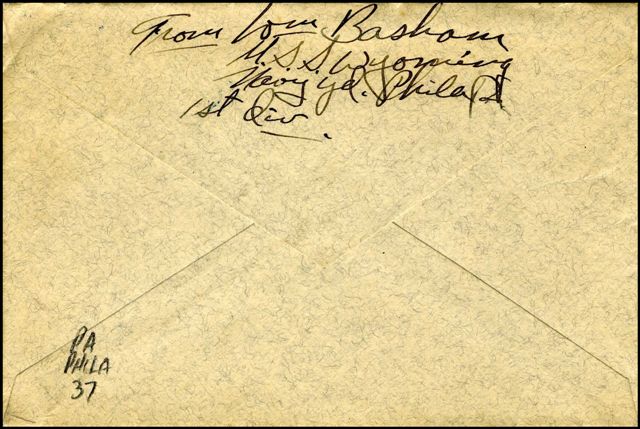 From Wm Basham
U.S.S Wyoming
Navy yd. Phila Pa
1st Div.
PA
PHILA
37